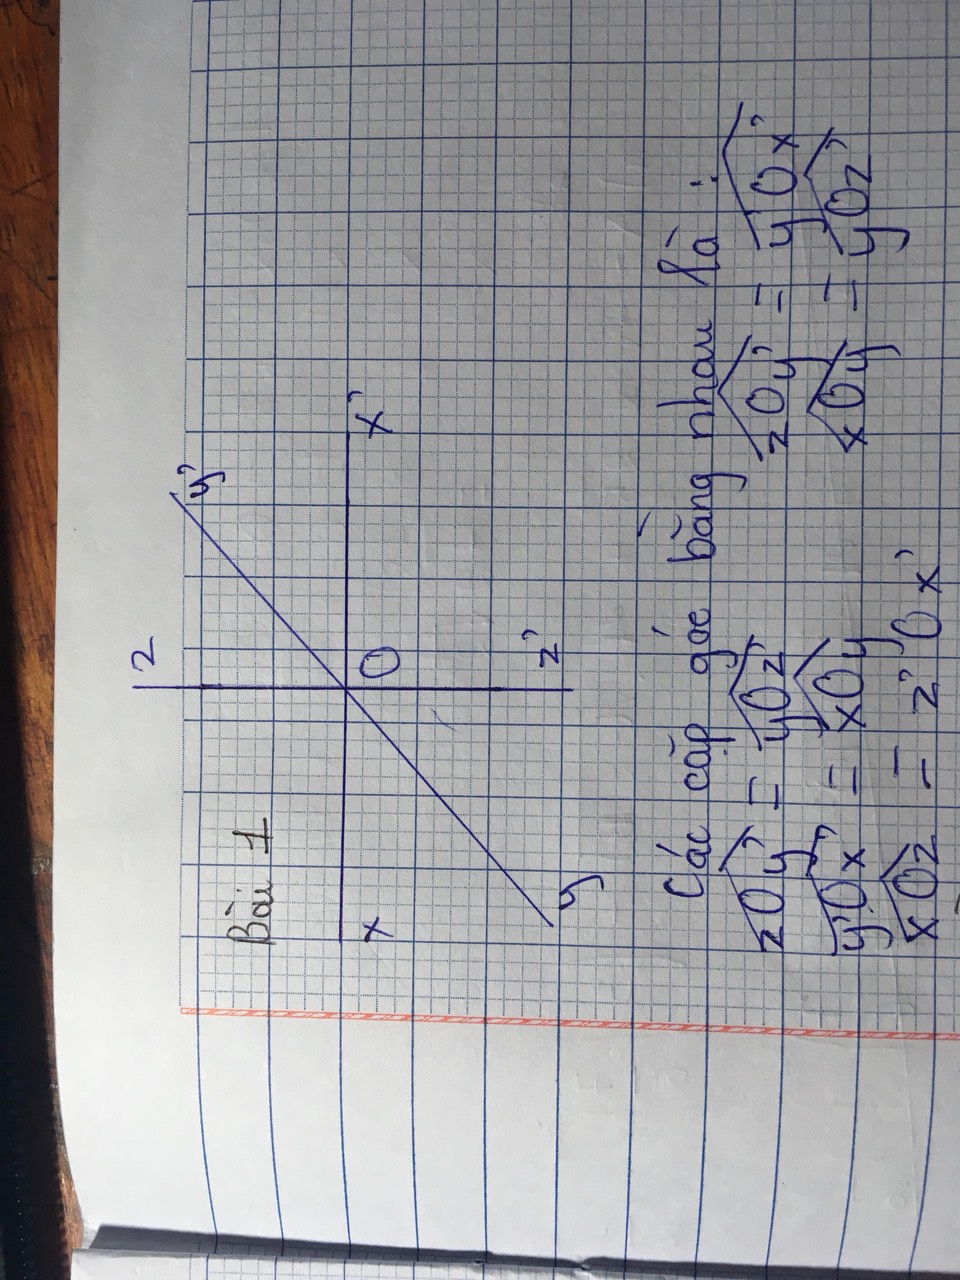 Bài 1
z
y'
x
O
x'
y
z'
Các cặp góc bằng nhau là :
zOy' = yOz' zOy' = y'Ox'
y'Ox' = xOy xOy = yOz'
xOz = z'Ox'